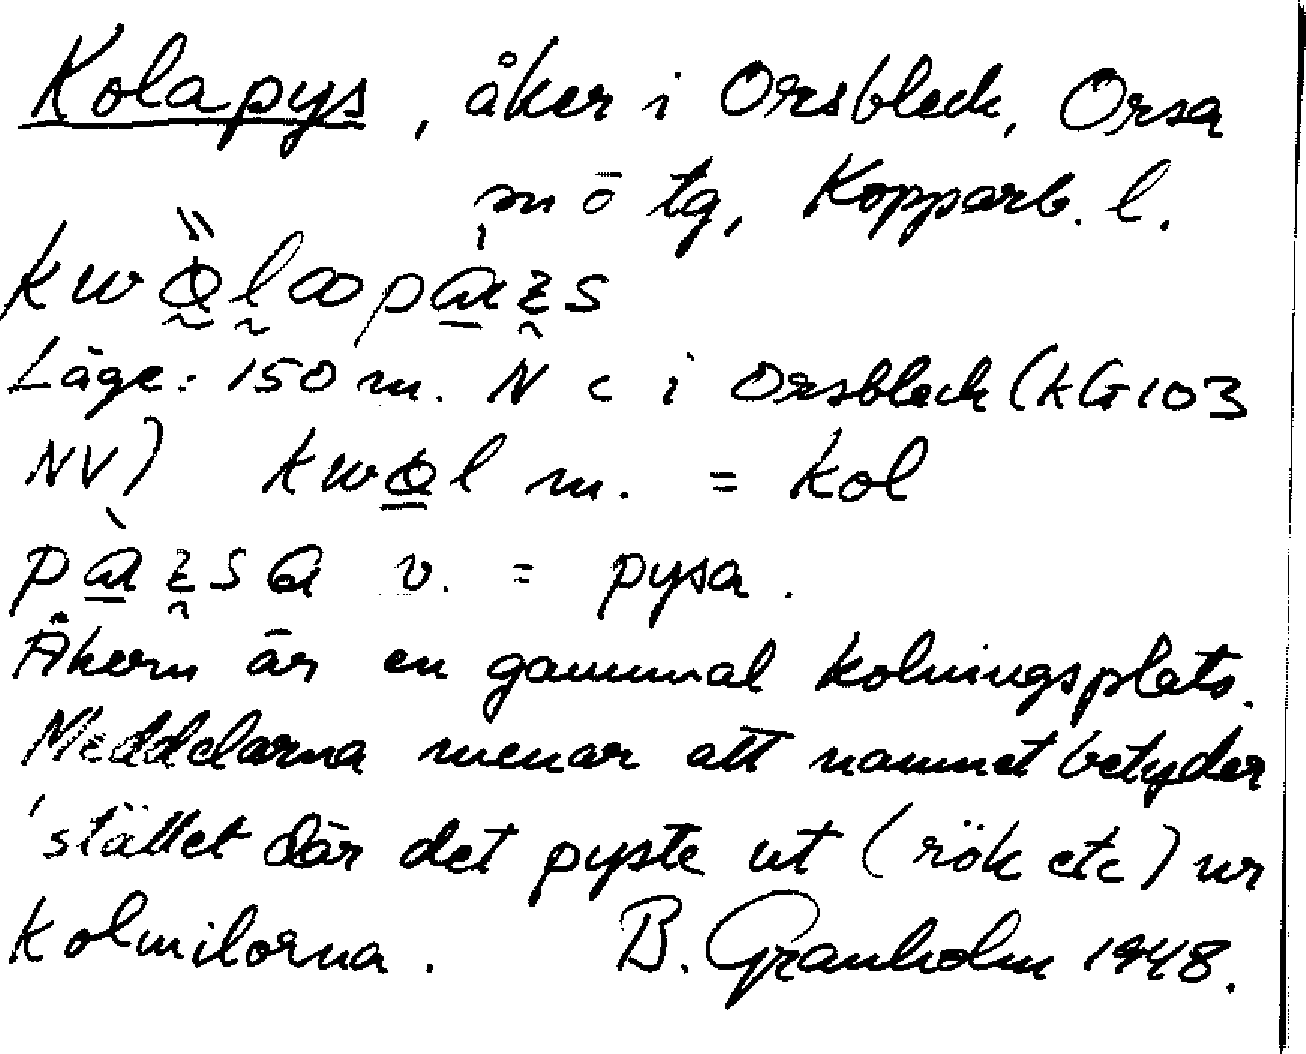 Kolapys, åker i Orsbleck, Orsa
m ō tg, Kopparb. l.
Läge: 150 m. N c i Orsbleck (KG 103
NV) m. = kol
v. = pysa.
Åkern är en gammal kolningsplats.
Meddelarna menar att namnet betyder
'stället där det pyste ut (rök etc) ur
Kolmilorna. B. Granholm 1948.